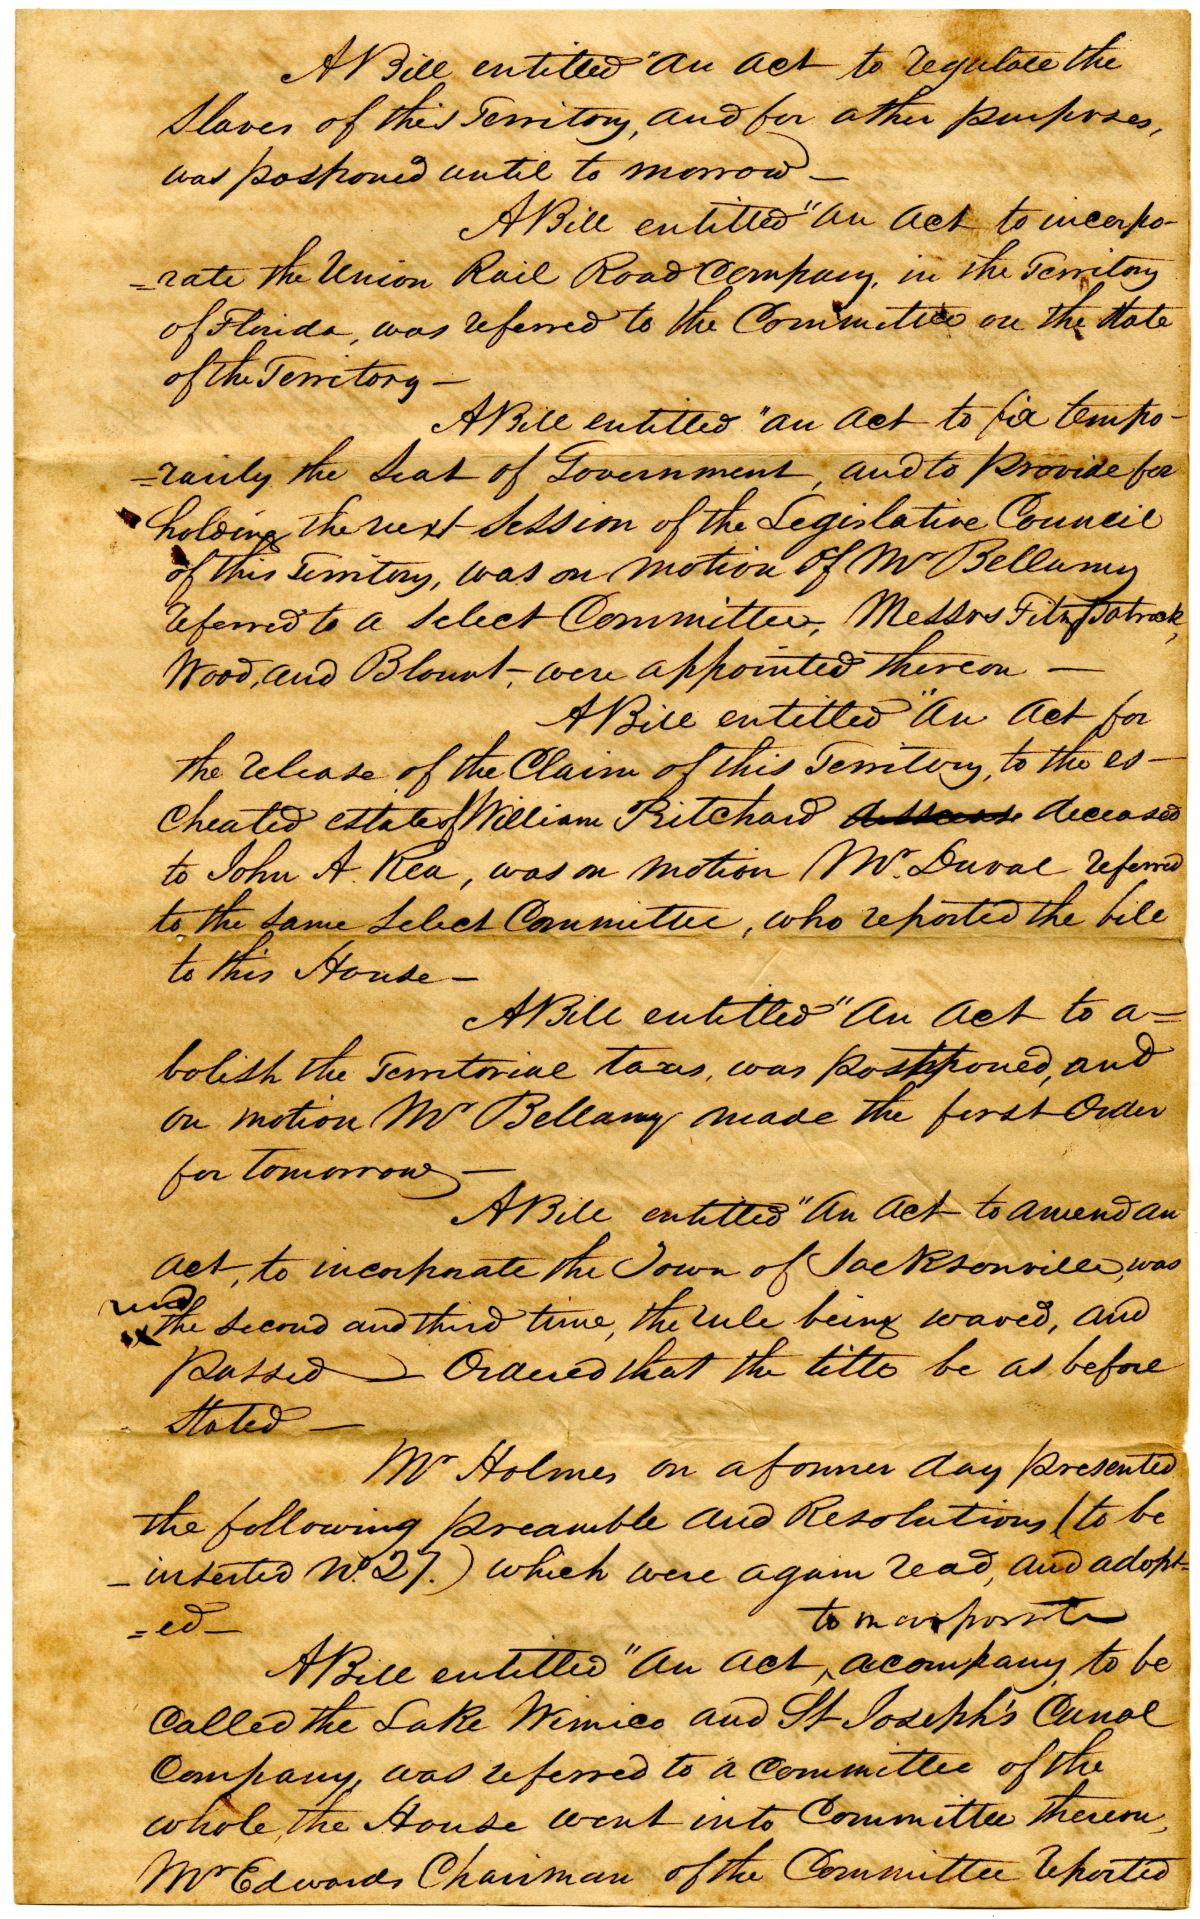 A Bill entitled "An Act to regulate the
Slaves of this Territory, and for other purposes,
was postponed until to morrow —
A Bill entitled "An Act to incorpo-
=rate the Union Rail Road Company, in the Territory
of Florida, was referred to the Committee on the State
of the Territory —
A Bill entitled "an Act to fix tempo-
=rarily the Seat of Government, and to provide for
holding the next Session of the Legislative Council
of this Territory, was on motion of Mr Bellamy
referred to a Select Committee, Messrs Fitzpatrick,
Wood, and Blount, were appointed thereon —
A Bill entitled "An Act for
the release of the Claim of this Territory, to the es-
cheated estate of William Pritchard deceased
to John A. Rea, was on motion Mr. Duval referred
to the same Select Committee, who reported the bill
to this House —
A Bill entitled "An Act to a=
bolish the Territorial taxes, was postponed, and
on motion Mr Bellamy made the first Order
for tomorrow —
A Bill entitled "An Act to amend an
act, to incorporate the Town of Jacksonville, was
read
the second and third time, the rule being waved, and
Passed — Ordered that the title be as before
Stated —
Mr Holmes on a former day presented
the following preamble and Resolutions (to be
inserted No. 27.) which were again read, and adopt-
=ed —
to incorporate
A Bill entitled "An Act, ‸ a company, to be
Called the Lake Wimico and St Joseph's Canal
Company, was referred to a Committee of the
whole, the House went into Committee thereon,
Mr Edwards Chairman of the Committee reported